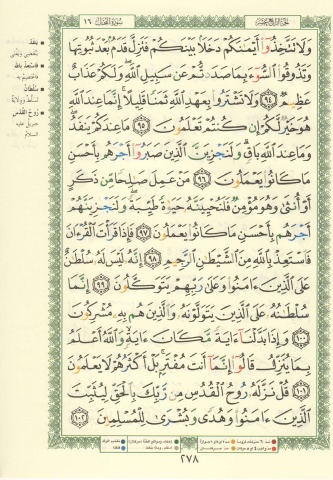 الجزء الرابع عشر
سورة النحل ١٦
وَلَا تَتَّخِذُوٓا۟ أَيْمَٰنَكُمْ دَخَلًۢا بَيْنَكُمْ فَتَزِلَّ قَدَمٌۢ بَعْدَ ثُبُوتِهَا
وَتَذُوقُوا۟ ٱلسُّوٓءَ بِمَا صَدَدتُّمْ عَن سَبِيلِ ٱللَّهِ وَلَكُمْ عَذَابٌ
عَظِيمٌ ٩٤ وَلَا تَشْتَرُوا۟ بِعَهْدِ ٱللَّهِ ثَمَنًا قَلِيلًا إِنَّمَا عِندَ ٱللَّهِ
هُوَ خَيْرٌ لَّكُمْ إِن كُنتُمْ تَعْلَمُونَ ٩٥ مَا عِندَكُمْ يَنفَدُ
وَمَا عِندَ ٱللَّهِ بَاقٍ وَلَنَجْزِيَنَّ ٱلَّذِينَ صَبَرُوٓا۟ أَجْرَهُم بِأَحْسَنِ
مَا كَانُوا۟ يَعْمَلُونَ ٩٦ مَنْ عَمِلَ صَٰلِحًا مِّن ذَكَرٍ
أَوْ أُنثَىٰ وَهُوَ مُؤْمِنٌ فَلَنُحْيِيَنَّهُۥ حَيَوٰةً طَيِّبَةً وَلَنَجْزِيَنَّهُمْ
أَجْرَهُم بِأَحْسَنِ مَا كَانُوا۟ يَعْمَلُونَ ٩٧ فَإِذَا قَرَأْتَ ٱلْقُرْءَانَ
فَٱسْتَعِذْ بِٱللَّهِ مِنَ ٱلشَّيْطَٰنِ ٱلرَّجِيمِ ٩٨ إِنَّهُۥ لَيْسَ لَهُۥ سُلْطَٰنٌ
عَلَى ٱلَّذِينَ ءَامَنُوا۟ وَعَلَىٰ رَبِّهِمْ يَتَوَكَّلُونَ ٩٩ إِنَّمَا
سُلْطَٰنُهُۥ عَلَى ٱلَّذِينَ يَتَوَلَّوْنَهُۥ وَٱلَّذِينَ هُم بِهِۦ مُشْرِكُونَ
١٠٠ وَإِذَا بَدَّلْنَآ ءَايَةً مَّكَانَ ءَايَةٍ وَٱللَّهُ أَعْلَمُ
بِمَا يُنَزِّلُ قَالُوٓا۟ إِنَّمَآ أَنتَ مُفْتَرٍۭ بَلْ أَكْثَرُهُمْ لَا يَعْلَمُونَ
١٠١ قُلْ نَزَّلَهُۥ رُوحُ ٱلْقُدُسِ مِن رَّبِّكَ بِٱلْحَقِّ لِيُثَبِّتَ
ٱلَّذِينَ ءَامَنُوا۟ وَهُدًى وَبُشْرَىٰ لِلْمُسْلِمِينَ ١٠٢
٢٧٨
ينفد
فاستعذ بالله
سلطان
روح القدس